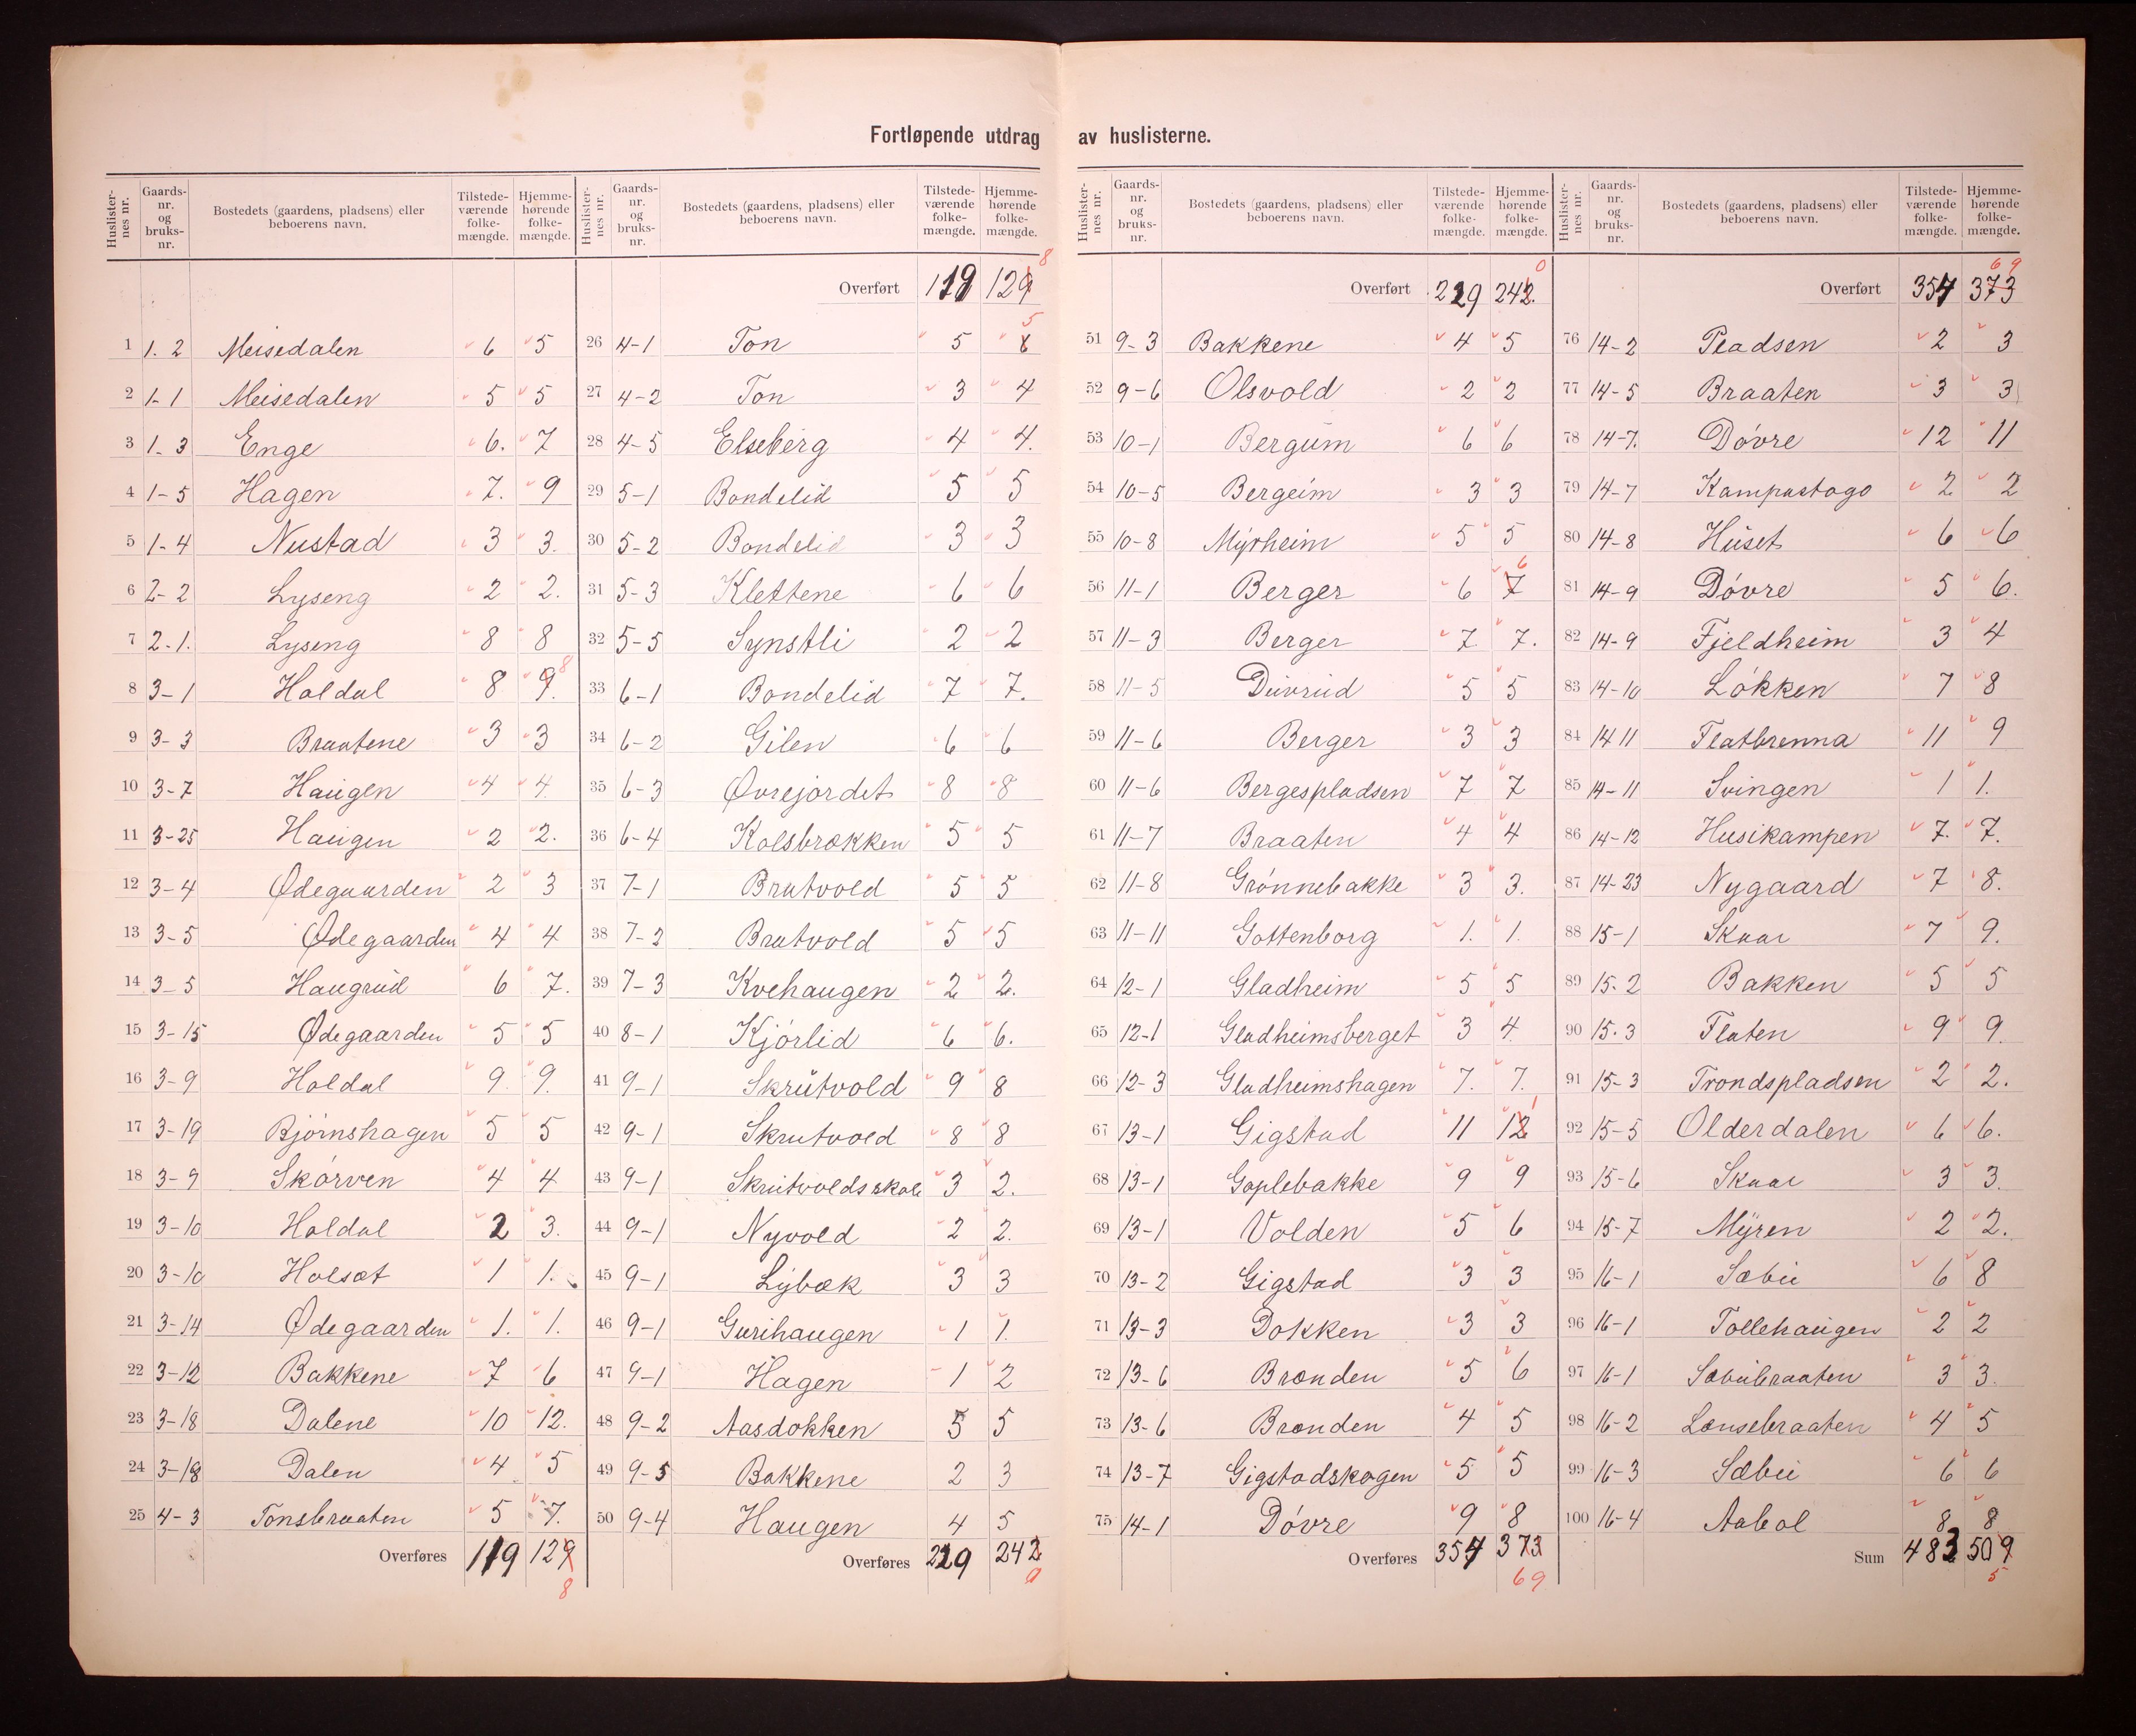 Fortløpende utdrag av huslisterne.
Huslister-nes nr. Gaards-nr. og bruks-nr. Bostedets (gaardens, pladsens) eller beboerens navn. Tilstede-værende folke-mængde. Hjemme-hørende folke-mængde.
1 1. 2 Meisedalen 6 5
2 1-1 Meisedalen 5 5
3 1-3 Enge 6. 7
4 1-5 Hagen 7. 9
5 1-4 Nustad 3 3.
6 2-2 Lyseng 2 2.
7 2-1. Lyseng 8 8
8 3-1 Holdal 8 9. 8
9 3-3 Braatene 3 3
10 3-7 Haugen 4 4
11 3-25 Haugen 2 2.
12 3-4 Ødegaarden 2 3
13 3-5 Ødegaarden 4 4
14 3-5 Haugrud 6 7.
15 3-15 Ødegaarden 5 5
16 3-9 Holdal 9 9.
17 3-19 Bjørnshagen 5 5
18 3-9 Skørven 4 4
19 3-10 Holdal 2 3.
20 3-10 Holsæt 1 1.
21 3-14 Ødegaarden 1. 1.
22 3-12 Bakkene 7 6
23 3-18 Dalene 10 12.
24 3-18 Dalen 4 5
25 4-3 Tonsbraaten 5 7.
Overføres 119 129 8
Huslister-nes nr. Gaards-nr. og bruks-nr. Bostedets (gaardens, pladsens) eller beboerens navn. Tilstede-værende folke-mængde. Hjemme-hørende folke-mængde.
Overført 119 129 8
26 4-1 Ton 5 6 5
27 4-2 Ton 3 4
28 4-5 Elseberg 4 4.
29 5-1 Bondelid 5 5
30 5-2 Bondelid 3 3
31 5-3 Klettene 6 6
32 5-5 Synstli 2 2
33 6-1 Bondelid 7 7.
34 6-2 Gilen 6 6
35 6-3 Øvrejordet 8 8
36 6-4 Kolsbrækken 5 5
37 7-1 Brutvold 5 5
38 7-2 Brutvold 5 5
39 7-3 Kvehaugen 2 2.
40 8-1 Kjørlid 6 6.
41 9-1 Skrutvold 9 8
42 9-1 Skrutvold 8 8
43 9-1 Skrutvolds skole 3 2.
44 9-1 Nyvold 2 2.
45 9-1 Lybæk 3 3
46 9-1 Gurihaugen 1 1.
47 9-1 Hagen 1 2
48 9-2 Aasdokken 5 5
49 9-5 Bakkene 2 3
50 9-4 Haugen 4 5
Overføres 229 242 0
Huslister-nes nr. Gaards-nr. og bruks-nr. Bostedets (gaardens, pladsens) eller beboerens navn. Tilstede-værende folke-mængde. Hjemme-hørende folke-mængde.
Overført 229 242. 0
51 9-3 Bakkene 4 5
52 9-6 Olsvold 2 2
53 10-1 Bergum 6 6
54 10-5 Bergeim 3 3
55 10-8 Myrheim 5 5
56 11-1 Berger 6 7 6
57 11-3 Berger 7 7.
58 11-5 Duvrud 5 5
59 11-6 Berger 3 3
60 11-6 Bergespladsen 7 7
61 11-7 Braaten 4 4
62 11-8 Grønnebakke 3 3.
63 11-11 Gottenborg 1. 1.
64 12-1 Gladheim 5 5
65 12-1 Gladheimsberget 3 4
66 12-3 Gladheimshagen 7. 7.
67 13-1 Gigstad 11 12 1
68 13-1 Goplebakke 9 9
69 13-1 Volden 5 6
70 13-2 Gigstad 3 3
71 13-3 Dokken 3 3
72 13-6 Brænden 5 6
73 13-6 Brænden 4 5
74 13-7 Gigstadskogen 5 5
75 14-1 Døvre 9 8
Overføres 354 373 69
Huslister-nes nr. Gaards-nr. og bruks-nr. Bostedets (gaardens, pladsens) eller beboerens navn. Tilstede-værende folke-mængde. Hjemme-hørende folke-mængde.
Overført 354 373 69
76 14-2 Pladsen 2 3
77 14-5 Braaten 3 3
78 14-7. Døvre 12 11
79 14-7 Kampestogo 2 2
80 14-8 Huset 6 6
81 14-9 Døvre 5 6.
82 14-9 Fjeldheim 3 4
83 14-10 Løkken 7 8
84 14 11 Flatbrenna 11 9
85 14-11 Svingen 1 1.
86 14-12 Husikampen 7. 7.
87 14-23 Nygaard 7 8.
88 15-1 Skaar 7 9.
89 15. 2 Bakken 5 5
90 15. 3 Flaten 9 9.
91 15-3 Trondspladsen 2 2.
92 15-5 Olderdalen 6 6.
93 15-6 Skaar 3 3.
94 15-7 Myren 2 2.
95 16-1 Sæbu 6 8
96 16-1 Tollehaugen 2 2
97 16-1 Sæbubraaten 3 3.
98 16-2 Lænsebraaten 4 5
99 16-3 Sæbu 6 6
100 16-4 Aabol 8 8
Sum 483 509 5